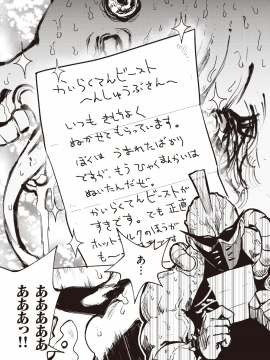 かいらくてんビースト
～へんしゅうぶさん～
いつも きもちよく
ぬかせてもらっています。
ぼくは うまれたばかり
ですが、もう ひゃくまんかいは
ぬいたんだぜ。
かいらくてんビーストが
すきです。でも 正直
ホットミルクのほうが
もー
あ…
ああああああ
ああああっ!!